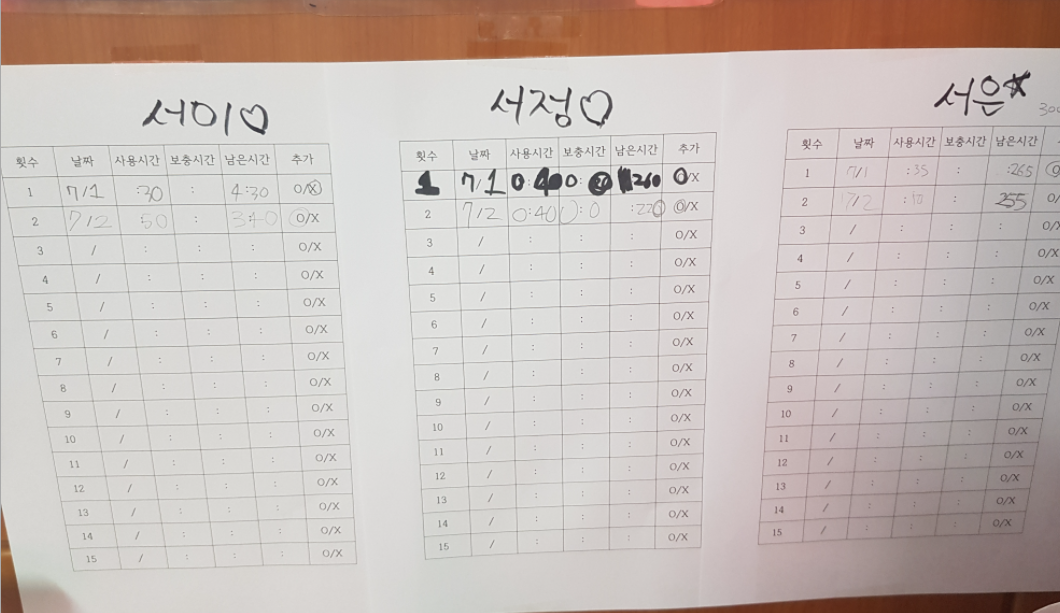 서이♡
횟수 날짜 사용시간 보충시간 남은시간 추가
1 7/1 :30 : 4:30 O/X
2 7/2 50 : 3:40 O/X
3 / : : : O/X
4 / : : : O/X
5 / : : : O/X
6 / : : : O/X
7 / : : : O/X
8 / : : : O/X
9 / : : : O/X
10 / : : : O/X
11 / : : : O/X
12 / : : : O/X
13 / : : : O/X
14 / : : : O/X
15 / : : : O/X
서정♡
횟수 날짜 사용시간 보충시간 남은시간 추가
1 7/1 0:40 0: 260 O/X
2 7/2 0:40 0:0 :220 O/X
3 / : : : O/X
4 / : : : O/X
5 / : : : O/X
6 / : : : O/X
7 / : : : O/X
8 / : : : O/X
9 / : : : O/X
10 / : : : O/X
11 / : : : O/X
12 / : : : O/X
13 / : : : O/X
14 / : : : O/X
15 / : : : O/X
서은☆
300
횟수 날짜 사용시간 보충시간 남은시간
1 7/1 :35 : :265
2 7/2 :10 : 255 O/
3 / : : : O/X
4 / : : : O/X
5 / : : : O/X
6 / : : : O/X
7 / : : : O/X
8 / : : : O/X
9 / : : : O/X
10 / : : : O/X
11 / : : : O/X
12 / : : : O/X
13 / : : : O/X
14 / : : : O/X
15 / : : : O/X